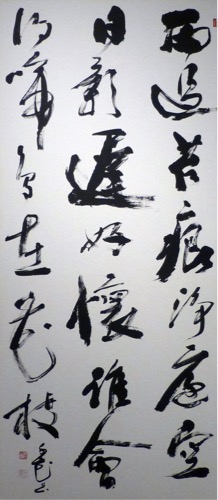 雨過苔痕淨庭空
日影遲好懷誰會
得啼鳥在花枝